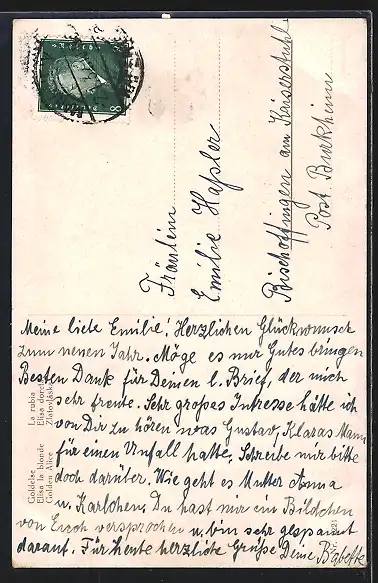 Fräulein
Emilie Haßler
Bischoffingen am Kaiserstuhl
Post Burkheim
Meine liebe Emilie! Herzlichen Glückwunsch
zum neuen Jahr. Möge es nur Gutes bringen
Besten Dank für Deinen l. Brief, der mich
sehr freute. Sehr großes Intresse hätte ich
von Dir zu hören was Gustav, Klaras Mann
für einen Unfall hatte. Schreibe mir bitte
doch darüber. Wie geht es Mutter Anna
u. Karlchen. Du hast mir ein Bildchen
von Euch versprochen u. bin sehr gespannt
darauf. Für heute herzliche Grüße Deine
Goldelse
Elisa la blonde
Golden Alice
La rubia
Elisa
Zlatovláska
8